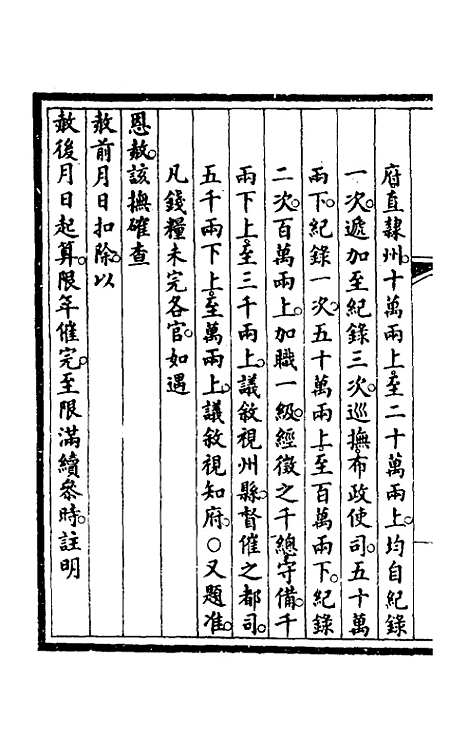 府直隸州。十萬兩上至二十萬兩上。均自紀錄
一次。遞加至紀錄三次。巡撫布政使司。五十萬
兩下。紀錄一次。五十萬兩上至百萬兩下。紀錄
二次。百萬兩上。加職一級。經徵之千總守備。千
兩下上至三千兩上。議敘視州縣。督催之都司。
五千兩下上至萬兩上。議敘視知府。○又題准。
凡錢糧未完各官。如遇
恩赦。該撫確查
赦前月日扣除。以
赦後月日起算。限年催完。至限滿續參時。註明